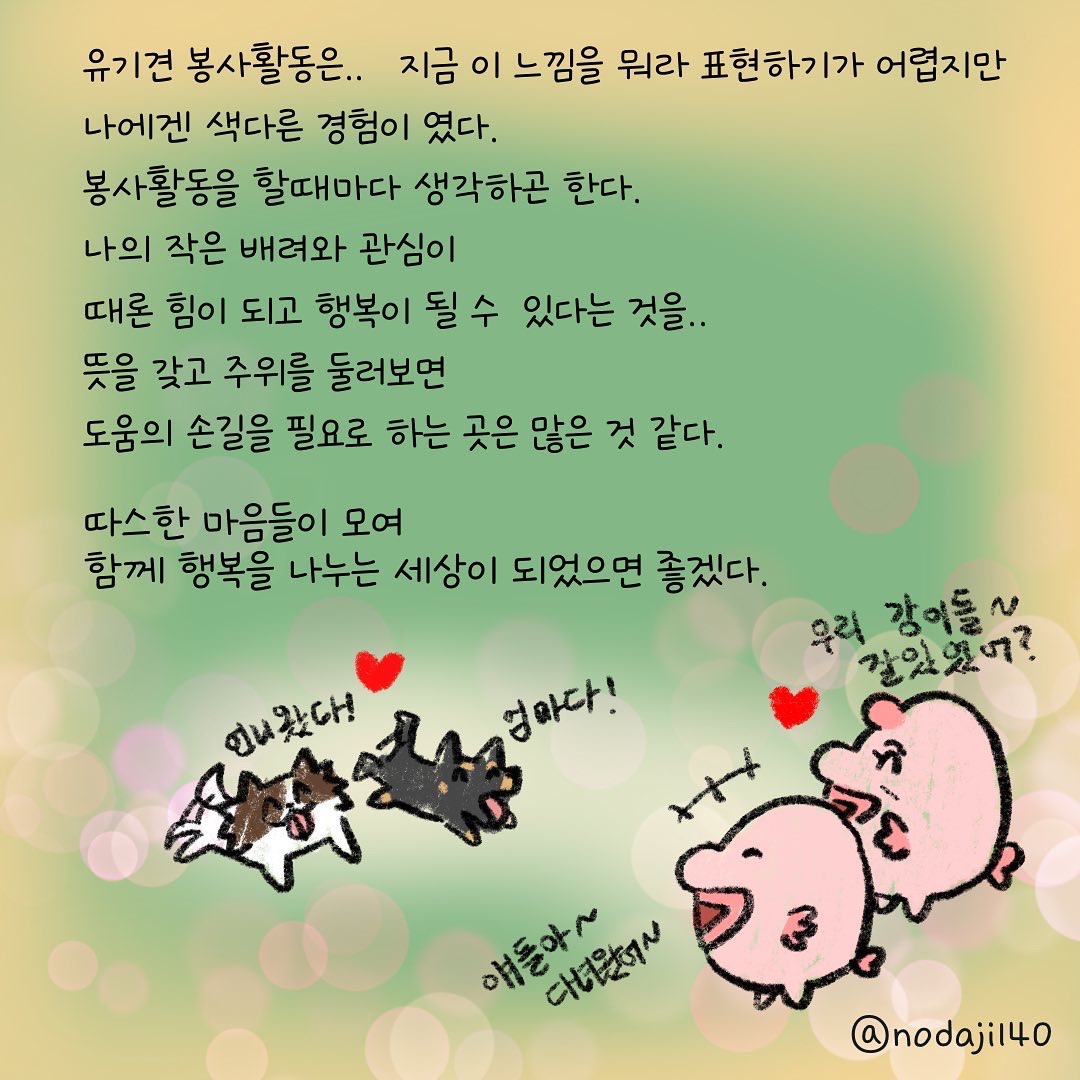 유기견 봉사활동은.. 지금 이 느낌을 뭐라 표현하기가 어렵지만
나에겐 색다른 경험이 였다.
봉사활동을 할때마다 생각하곤 한다.
나의 작은 배려와 관심이
때론 힘이 되고 행복이 될 수 있다는 것을..
뜻을 갖고 주위를 둘러보면
도움의 손길을 필요로 하는 곳은 많은 것 같다.
따스한 마음들이 모여
함께 행복을 나누는 세상이 되었으면 좋겠다.
우리 강이들~
잘있었어?
언니왔다!
엄마다!
얘돌아~
다녀왔어~
@nodaji140